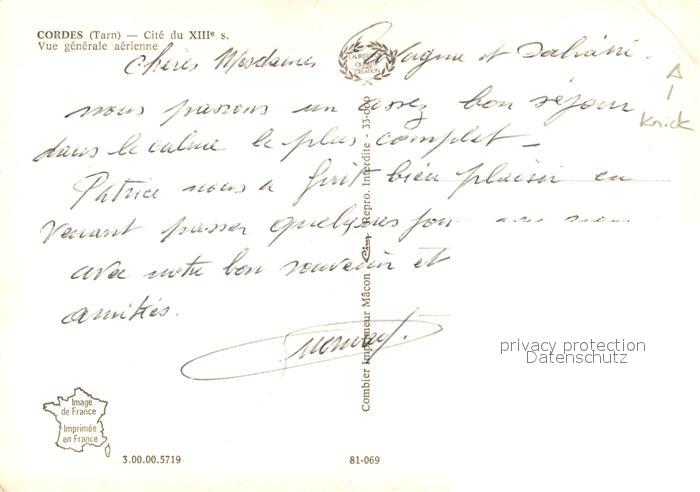 CORDES (Tarn) — Cité du XIIIe s.
Vue générale aérienne
LAURIERS
QUALITÉ
CRÉATION
Chères Mesdames et
nous passons un assez bon séjour
dans le calme le plus complet —
Patrice nous a fait bien plaisir en
venant passer quelques
avec notre bon souvenir et
amitiés.
Knick
Combier Imprimeur Mâcon Cim Repro. Interdite - 33-000
privacy protection
Datenschutz
Image
de France
Imprimée
en France
3.00.00.5719
81-069